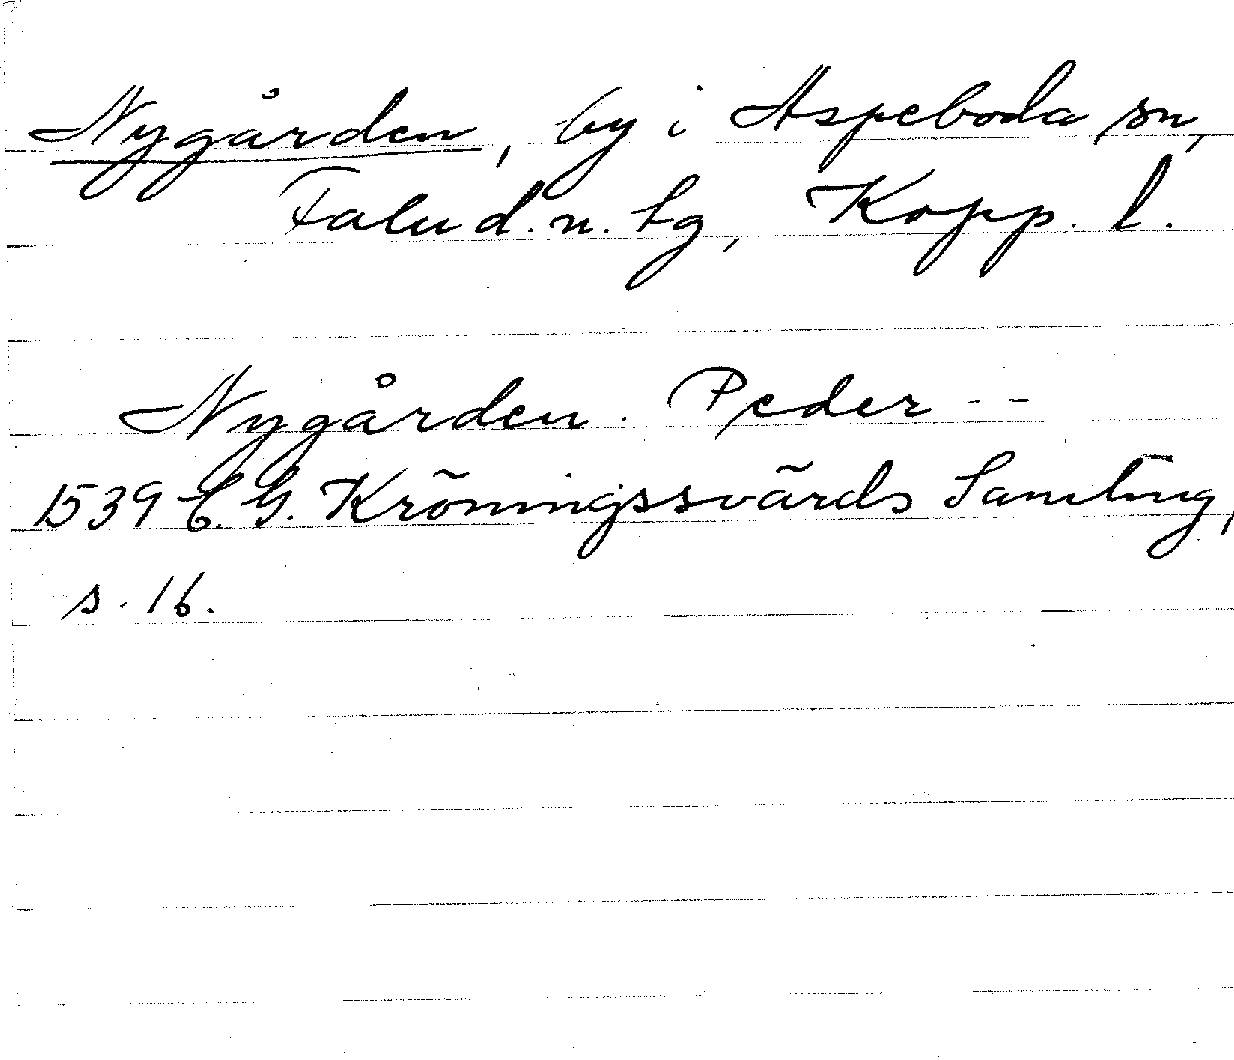 Nygården, by i Aspeboda sn,
Falu d. n. tg, Kopp. l.
Nygården. Peder --
1539 C. G. Kröningssvärds Samling,
s. 16.